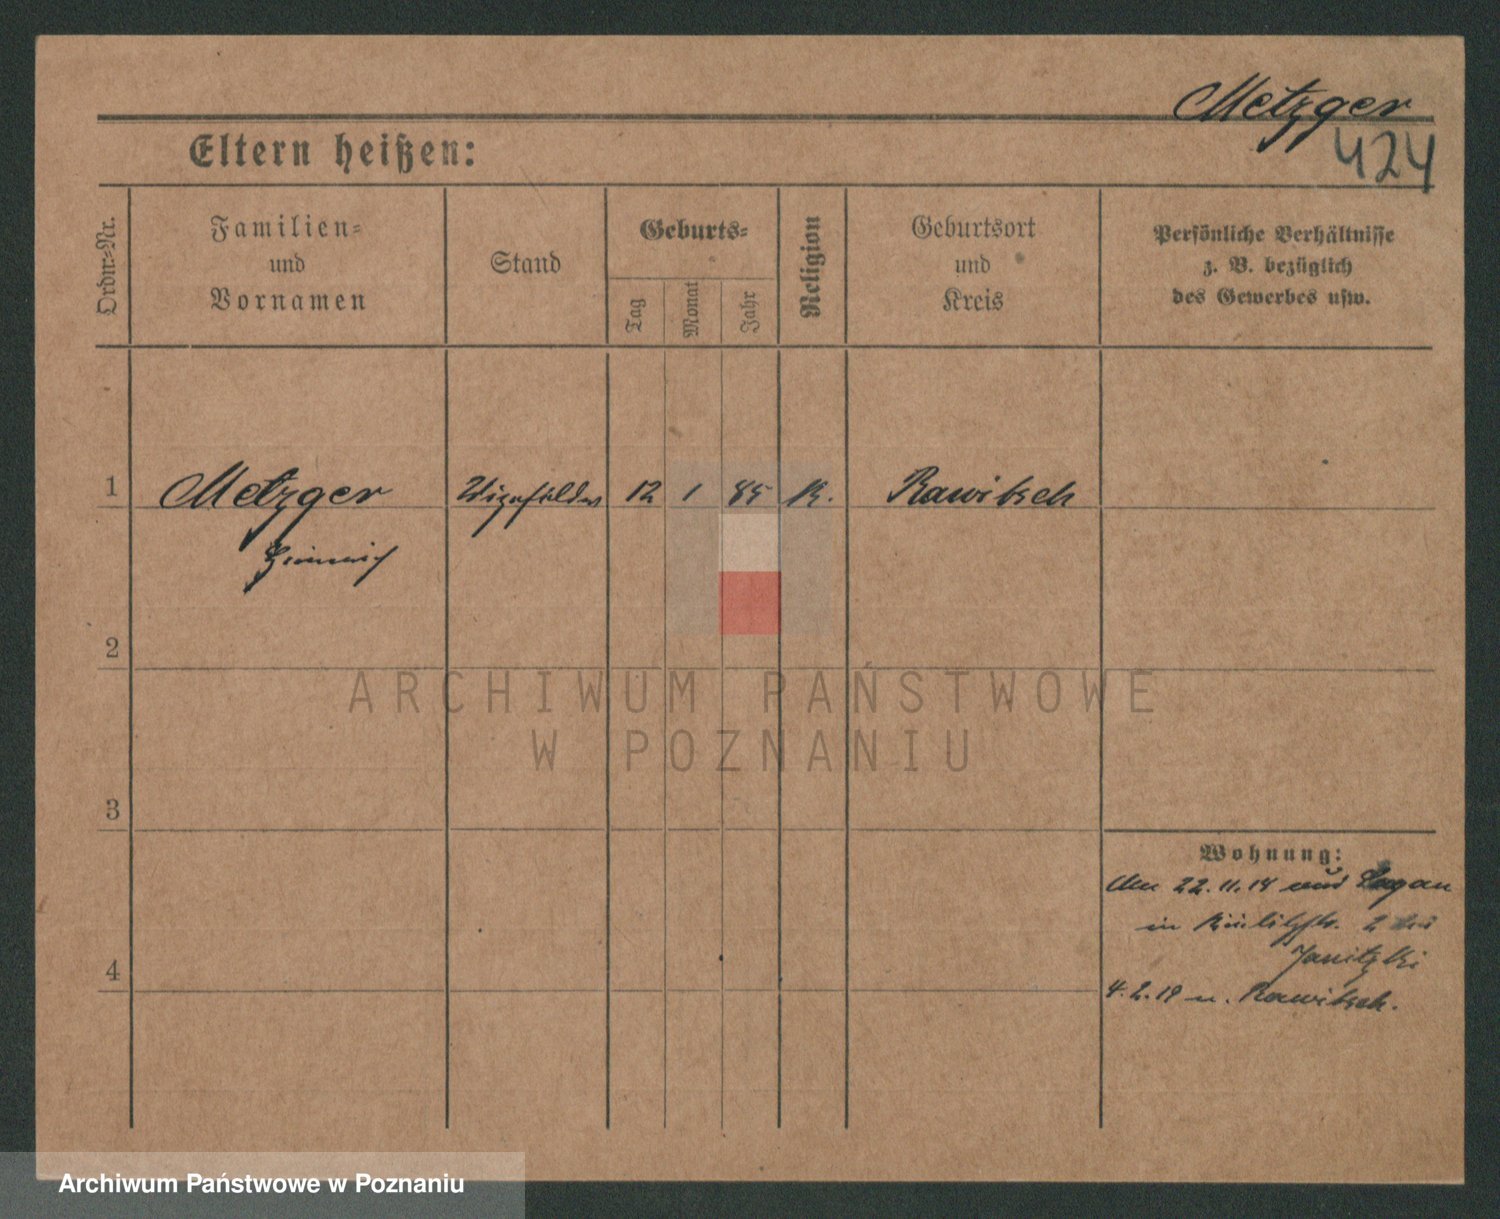 Metzger
424
Eltern heißen:
Ordn-Nr.
Familien-
und
Vornamen
Stand
Geburts-
Tag
Monat
Jahr
Religion
Geburtsort
und
Kreis
Persönliche Verhältnisse
z. B. bezüglich
des Gewerbes usw.
1 Metzger 12 1 85 K. Rawitsch
Heinrich
2
ARCHIWUM PAŃSTWOWE
W POZNANIU
3
Wohnung:
22.11.18 Sagan
in 2 bei
Janitzki
4
4.2.19 n. Rawitsch.
Archiwum Państwowe w Poznaniu